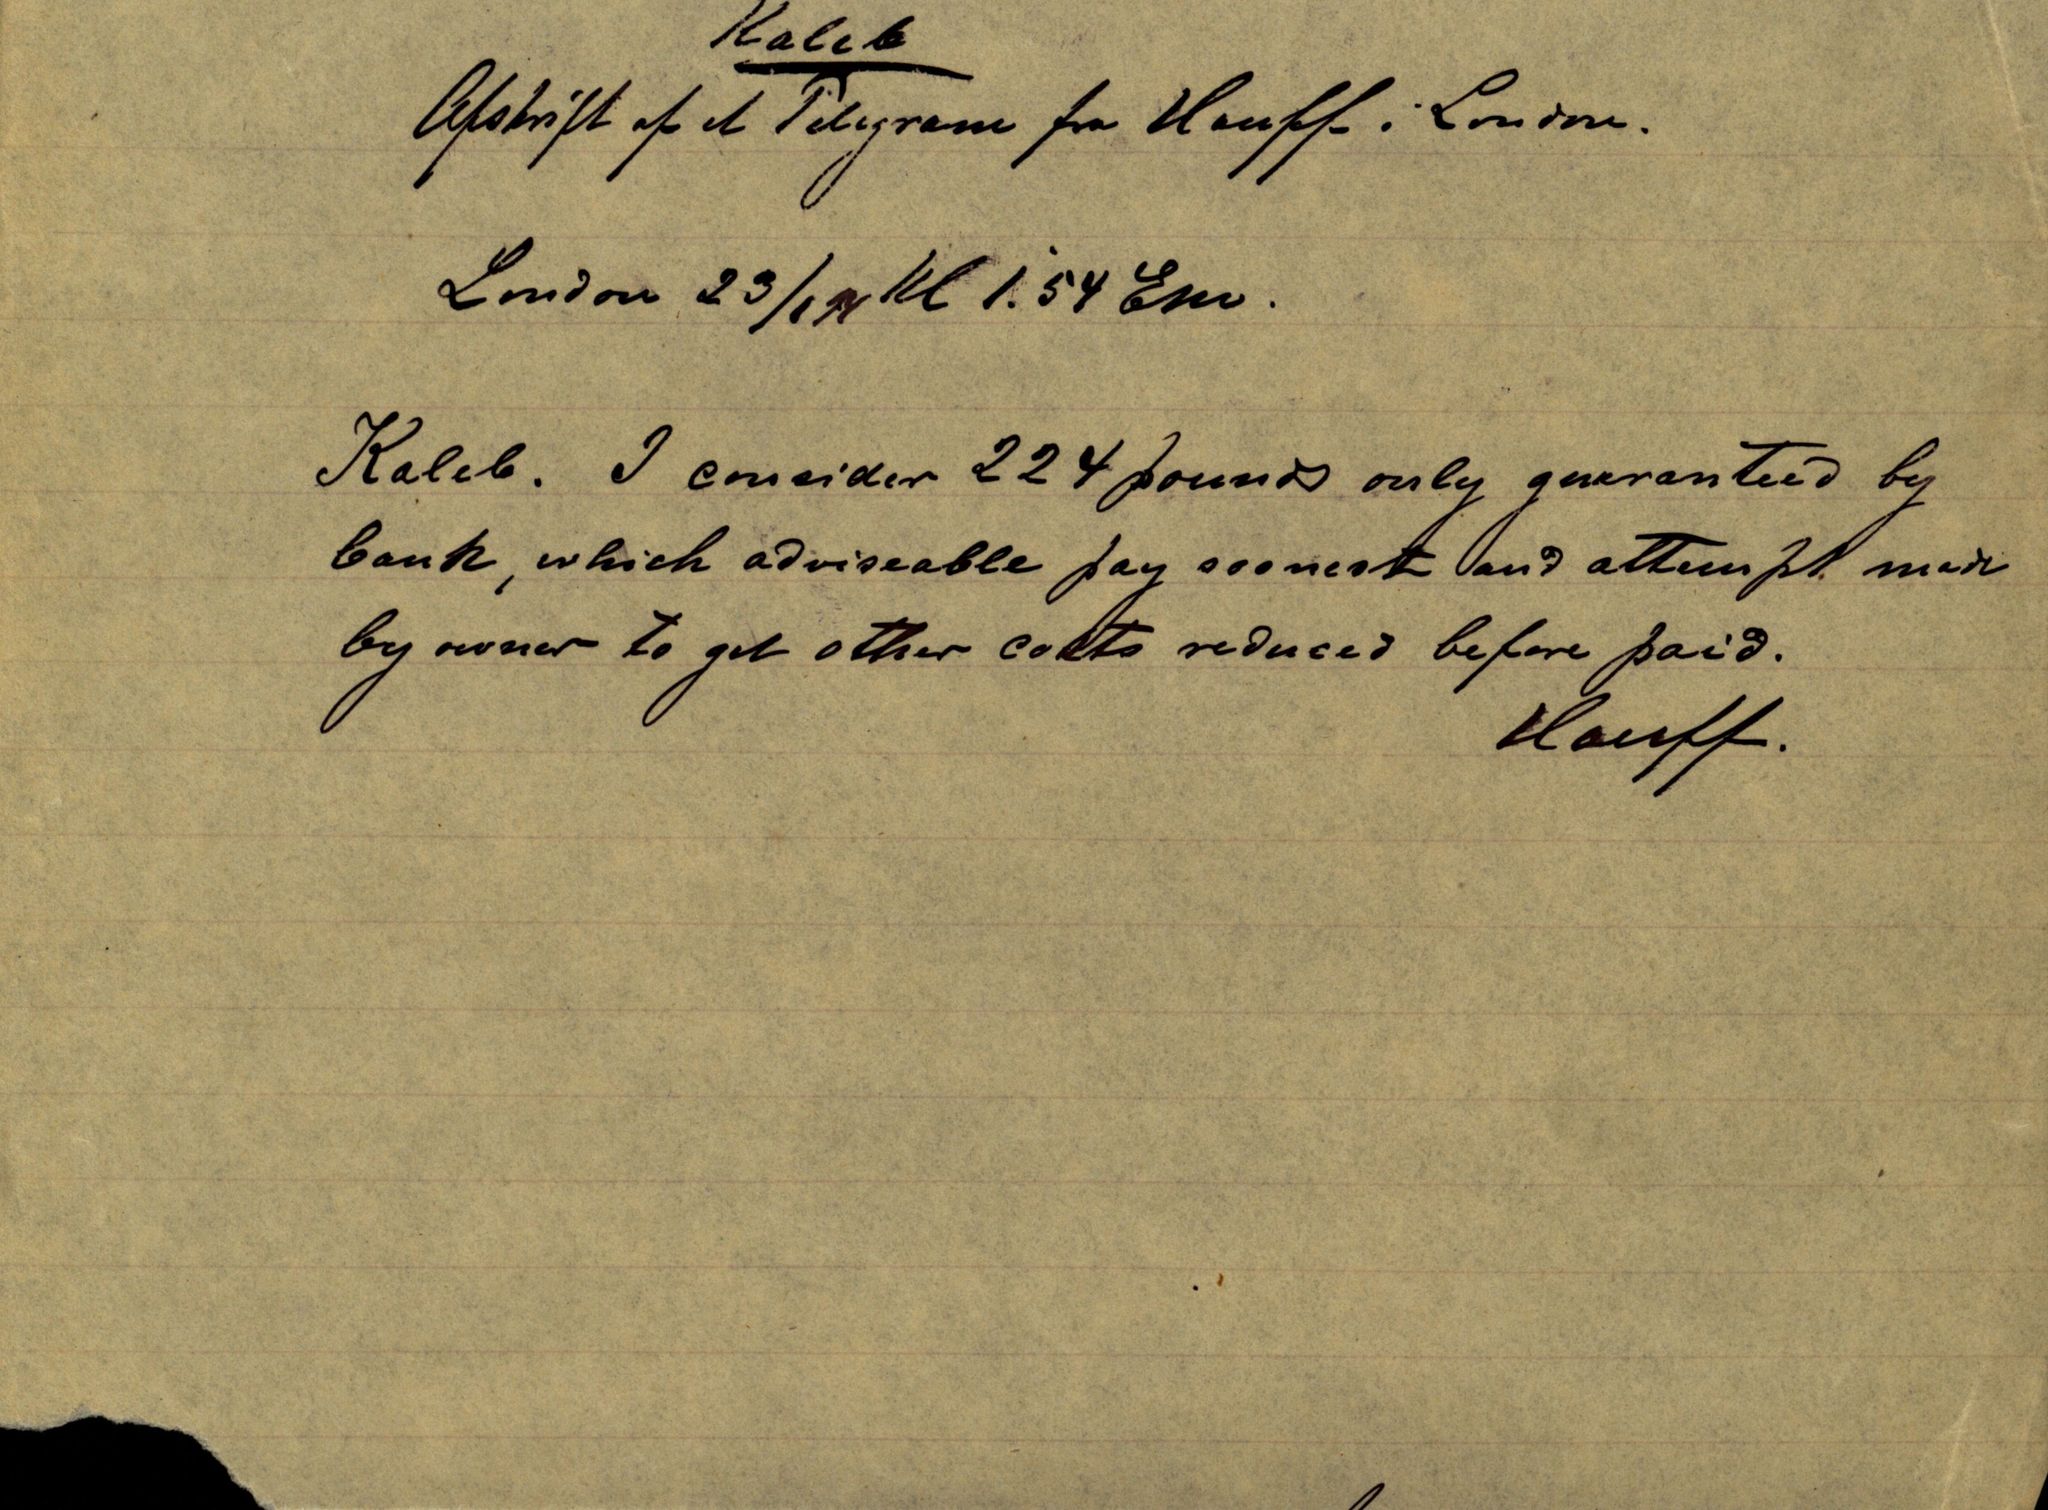 Kaleb
Afskrift af et Telegram fra Hauff i London.
London 23/1 91 Kl 1.54 Em.
Kaleb. I consider 224 pounds only guaranteed by
bank, which adviseable pay soonest and attempt made
by owner to get other costs reduced before paid.
Hauff.